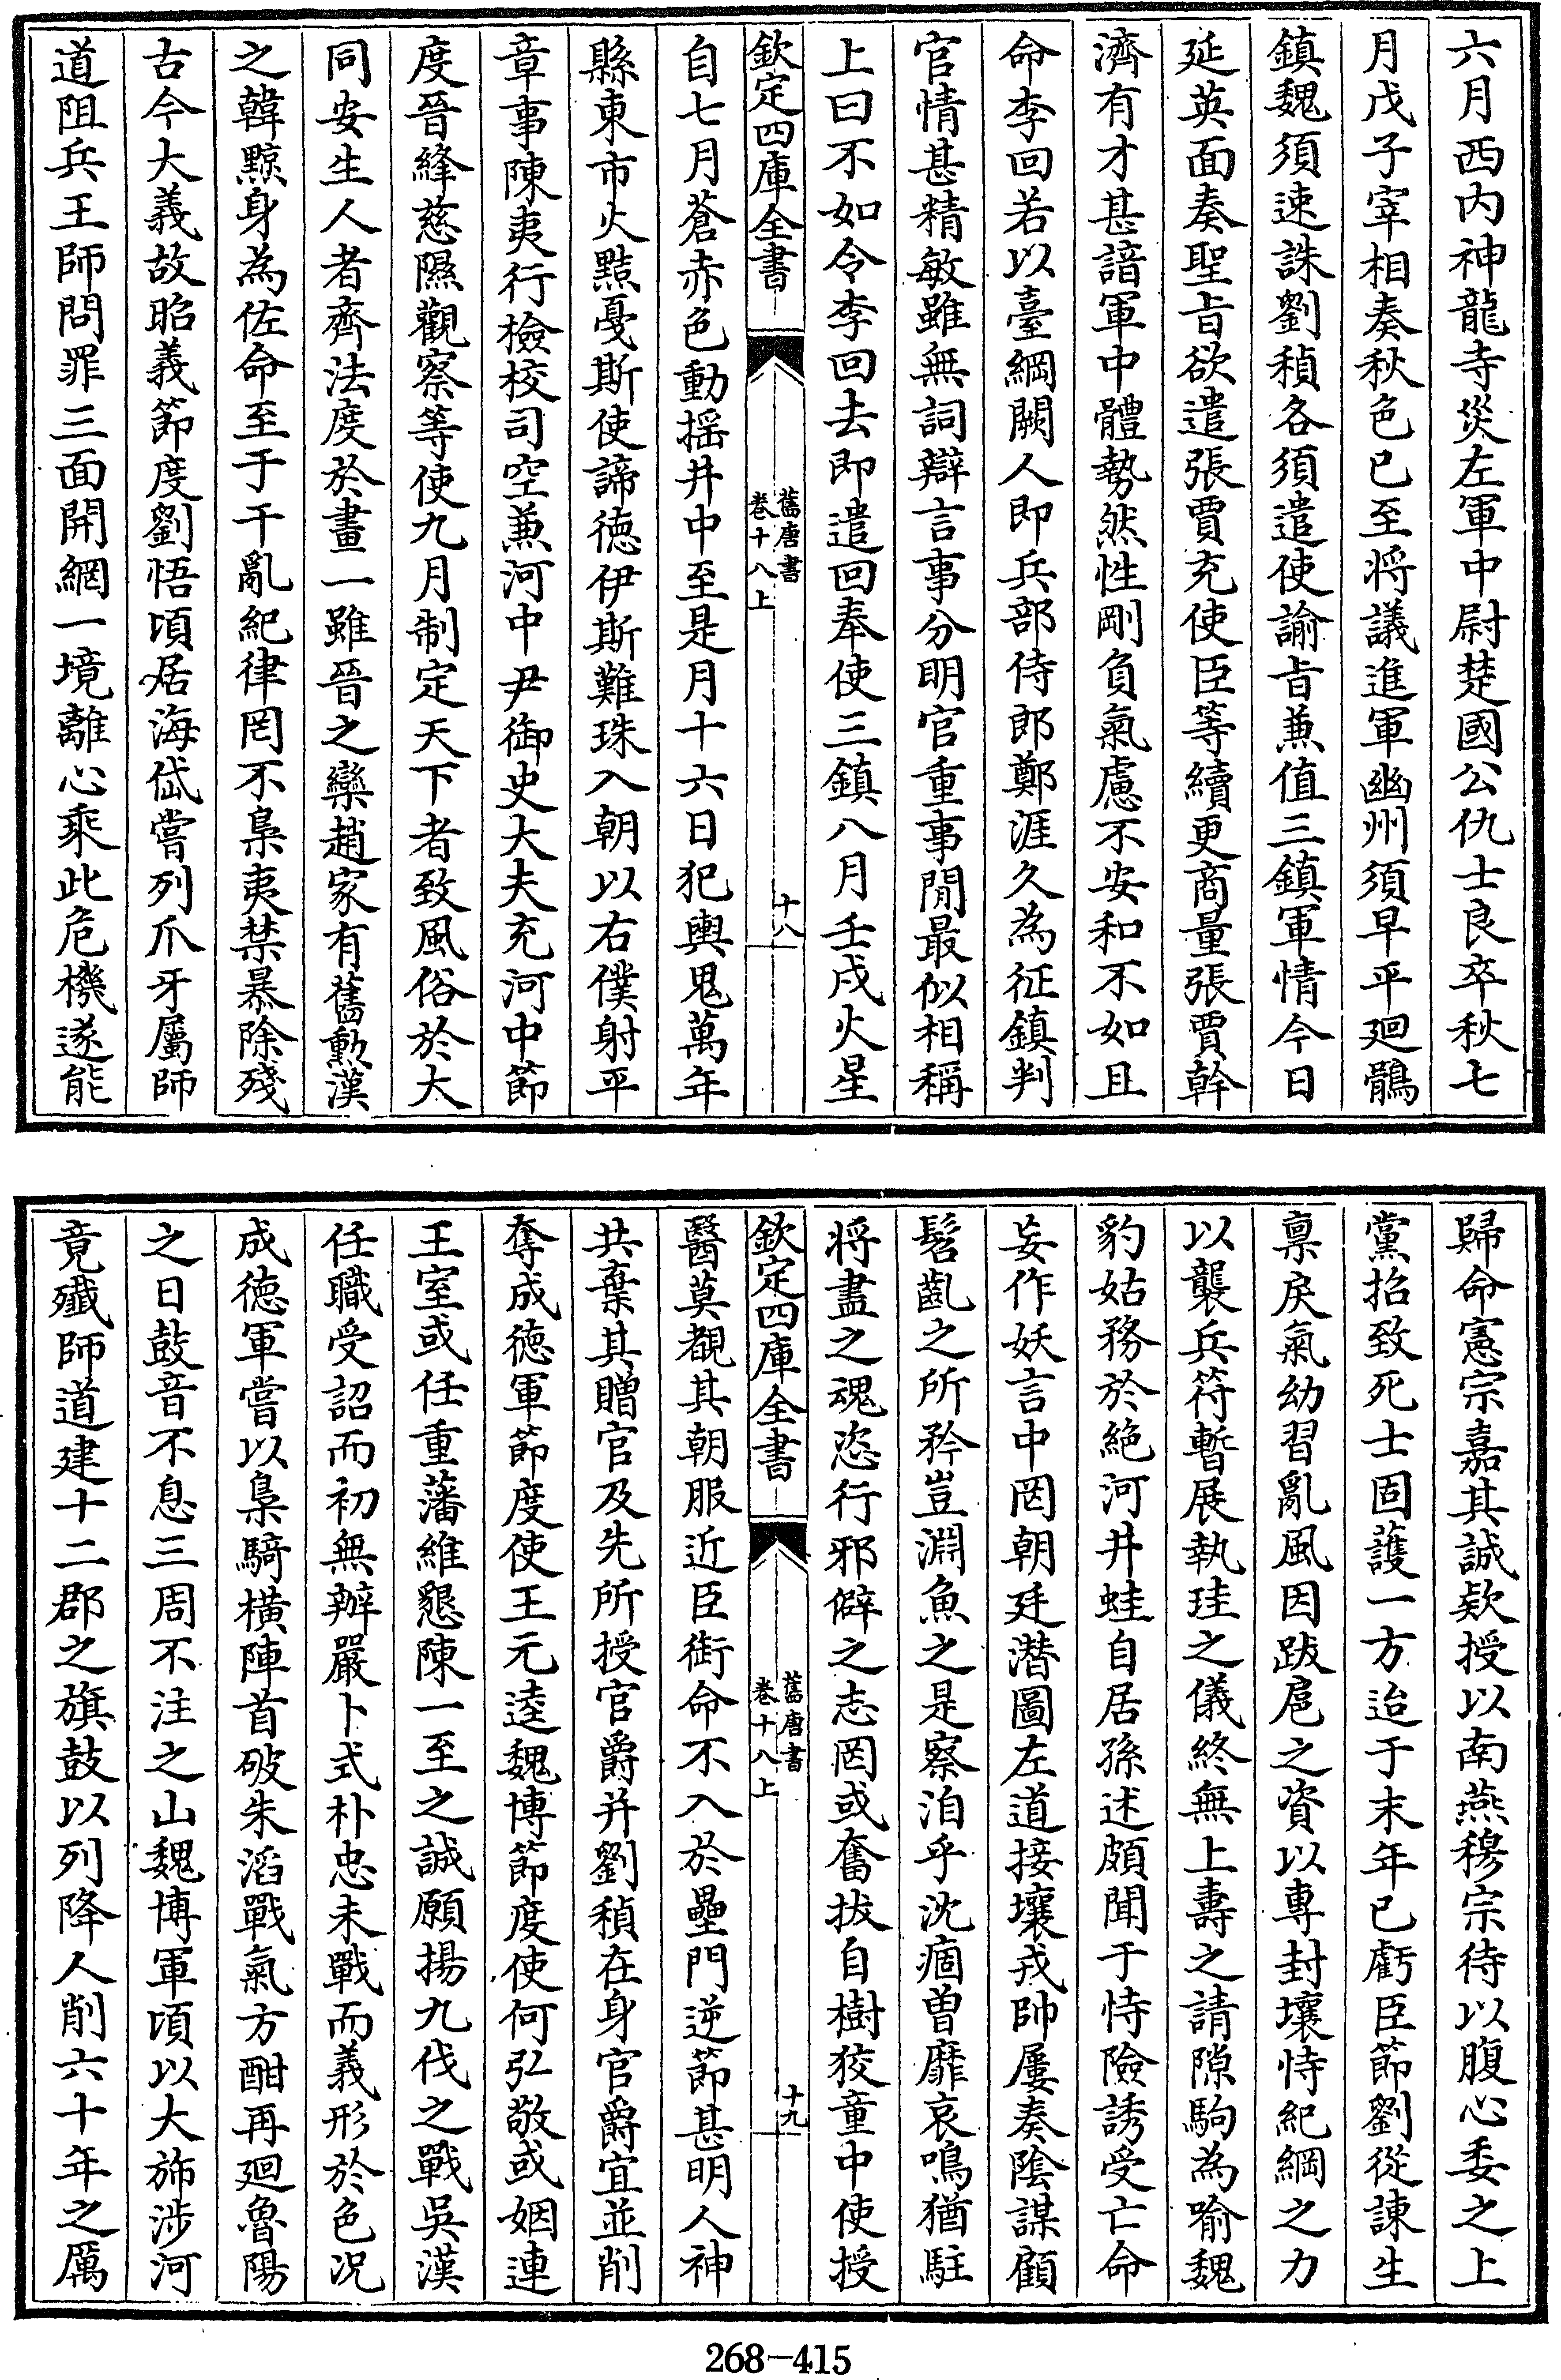 六月西内神龍寺災左軍中尉楚國公仇士良卒秋七
月戊子宰相奏秋色已至将議進軍幽州須早平廻鶻
鎮魏須速誅劉稹各須遣使諭旨兼值三鎮軍情今日
延英面奏聖旨欲遣張賈充使臣等續更商量張賈幹
濟有才甚諳軍中體勢然性剛負氣慮不安和不如且
命李回若以臺綱闕人即兵部侍郎鄭涯久為征鎮判
官情甚精敏雖無詞辯言事分明官重事閒最似相稱
上曰不如令李回去即遣回奉使三鎮八月壬戌火星
欽定四庫全書
舊唐書
卷十八上
十八
自七月蒼赤色動摇井中至是月十六日犯輿鬼萬年
縣東市火黠戛斯使諦徳伊斯難珠入朝以右僕射平
章事陳夷行檢校司空兼河中尹御史大夫充河中節
度晉絳慈隰觀察等使九月制定天下者致風俗於大
同安生人者齊法度於畫一雖晉之欒趙家有舊勲漢
之韓黥身為佐命至于干亂紀律罔不梟夷禁暴除殘
古今大義故昭義節度劉悟頃居海岱嘗列爪牙屬師
道阻兵王師問罪三面開網一境離心乘此危機遂能
歸命憲宗嘉其誠欵授以南燕穆宗待以腹心委之上
黨招致死士固護一方迨于末年已虧臣節劉從諫生
禀戾氣幼習亂風因跋扈之資以專封壤恃紀綱之力
以襲兵符暫展執珪之儀終無上壽之請隙駒為喻魏
豹姑務於絶河井蛙自居孫述頗聞于恃險誘受亡命
妄作妖言中罔朝廷潜圖左道接壤戎帥屢奏陰謀顧
髫齔之所矜豈淵魚之是察洎乎沈痼曾靡哀鳴猶駐
将盡之魂恣行邪僻之志罔或奮拔自樹狡童中使授
欽定四庫全書
舊唐書
卷十八上
十九
醫莫覩其朝服近臣銜命不入於壘門逆節甚明人神
共棄其贈官及先所授官爵并劉稹在身官爵宜並削
奪成徳軍節度使王元逵魏博節度使何弘敬或姻連
王室或任重藩維懇陳一至之誠願揚九伐之戰吳漢
任職受詔而初無辦嚴卜式朴忠未戰而義形於色况
成徳軍嘗以梟騎横陣首破朱滔戰氣方酣再廻魯陽
之日鼓音不息三周不注之山魏博軍頃以大斾涉河
竟殱師道建十二郡之旗鼓以列降人削六十年之厲
268-415